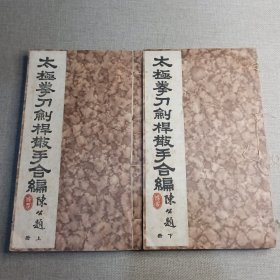 太極拳刀劍桿散手合編
陳公題
上冊
太極拳刀劍桿散手合編
陳公題
下冊